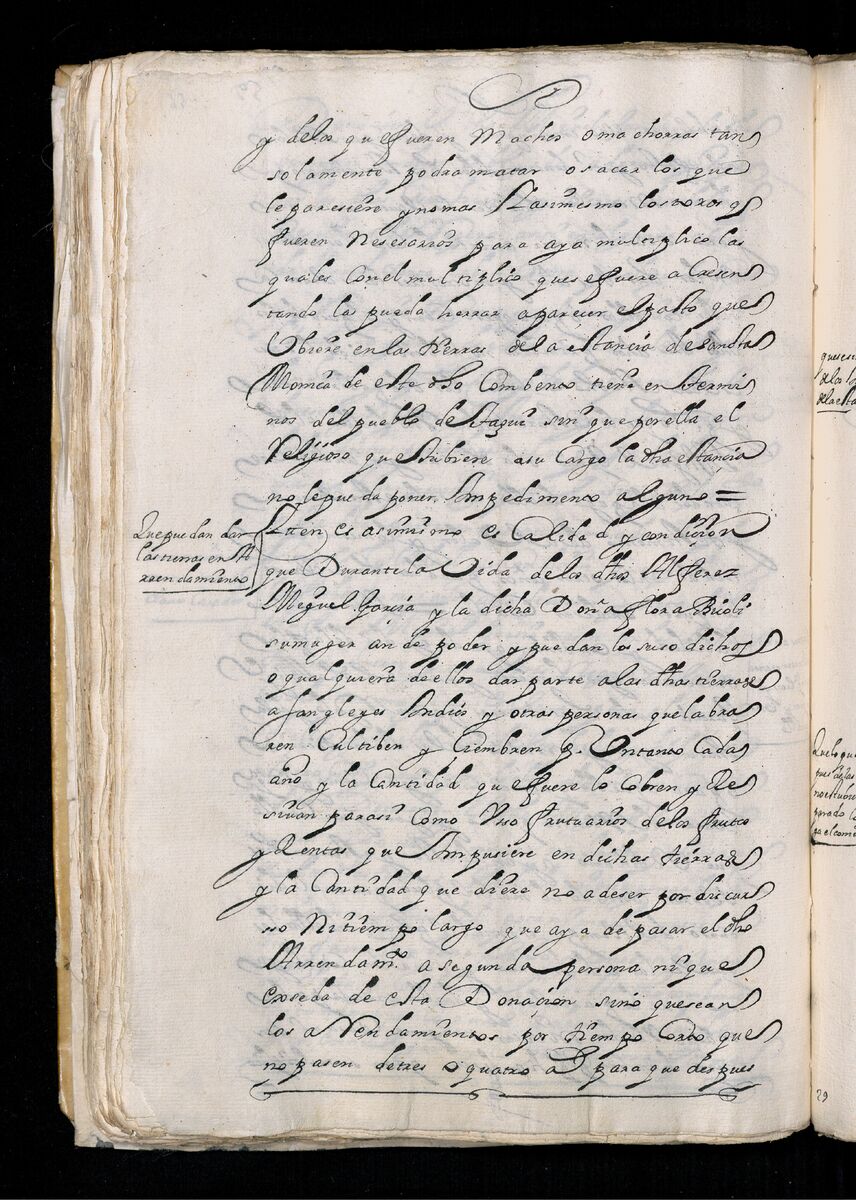 y delos que fueren Machos o machorras tan
solamente podra matar o sacar los que
le paresiere y no mas Y asimesmo los toros q
fueren Nesesarios para aya multiplico las
quales Con el multiplico que se fuere a Cresen
tando las pueda herrar a parecer el pasto que
Ubiere en las tierras de la estancia de Sancta
Monica de este dho Combento tiene en termi
nos del pueblo de sin que por ella el
Religioso que estubiere a su Cargo la dha estancia
no le pueda poner Ympedimento alguno =
Que puedan dar
las tierras en A
rrendamiento
Ytten es asimismo es Calidad y condicion
que Durante la Vida de los dhos Alferez
Miguel Garcia y la dicha Doña flora Bioli
su muger an de poder y puedan los suso dichos
o qualquiera de ellos dar parte a las dhas tierras
a Sangleyes Yndios y otras personas que labra
ren Cultiben y Ciembren p. Untanto Cada
año y la Cantidad que fuere lo Cobren y Re
sivan para si Como Uso frutuarios de los frutos
y Rentas que Ympusiere en dichas tierras
y la Cantidad que diere no a de ser por discur
so Ni tiempo largo que aya de pasar el dho
Arrendamto. a segunda persona ni que
Exseda de esta Donacion sino que sean
los arrendamientos por tiempo Corto que
no pasen de tres o quatro a para que despues
29